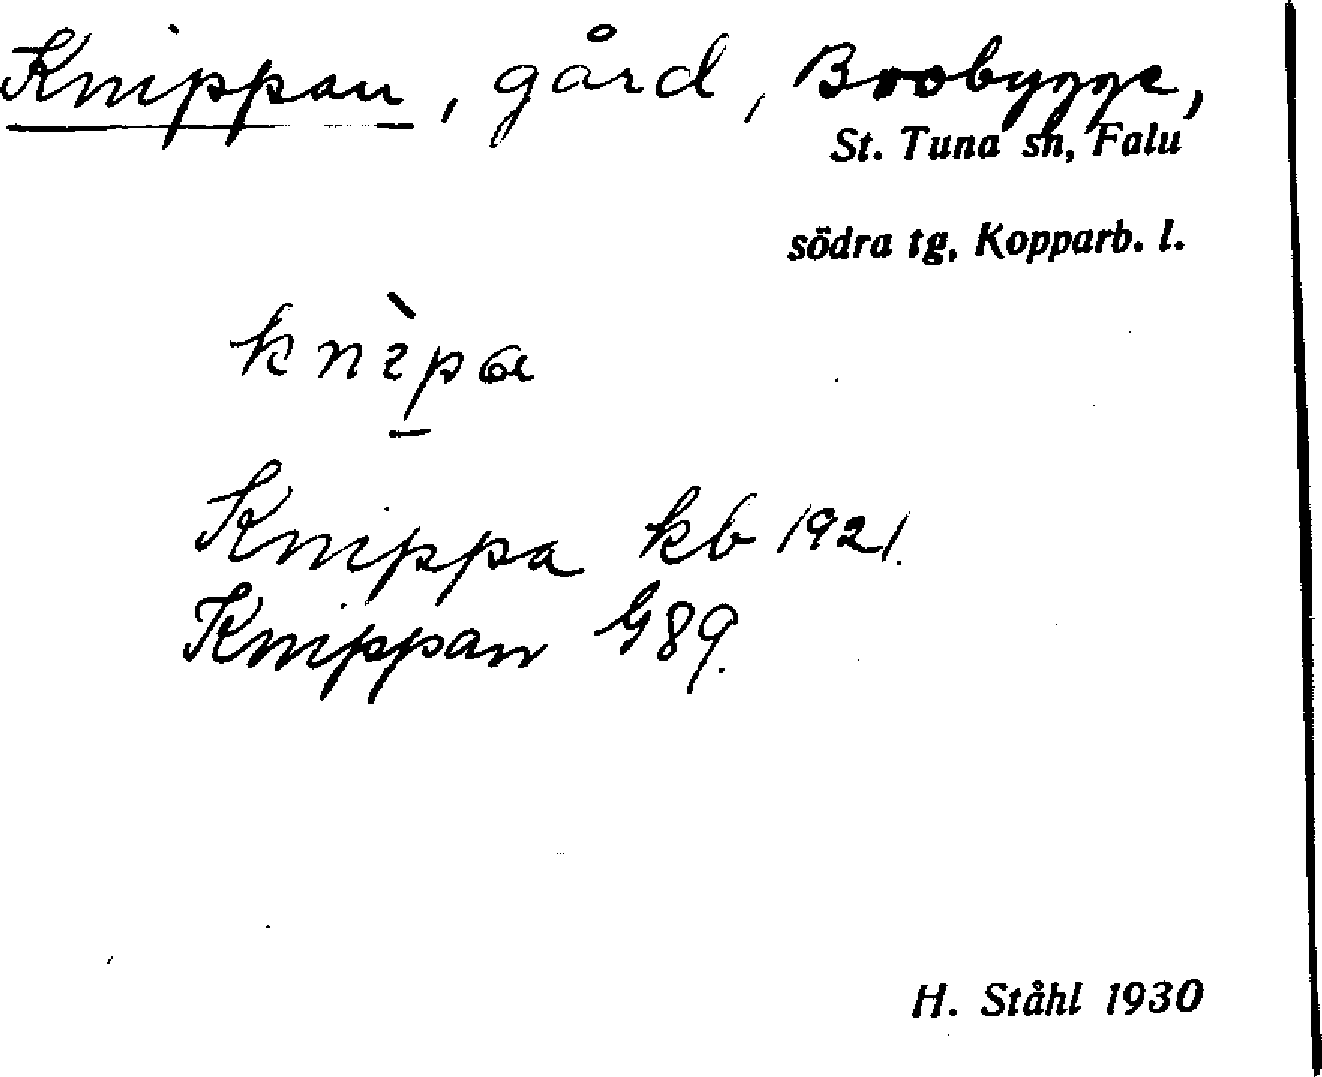 Knippan, gård, Brobygge,
St. Tuna sn, Falu
södra tg, Kopparb. l.
Knippa kb 1921.
Knippan G89.
H. Ståhl 1930